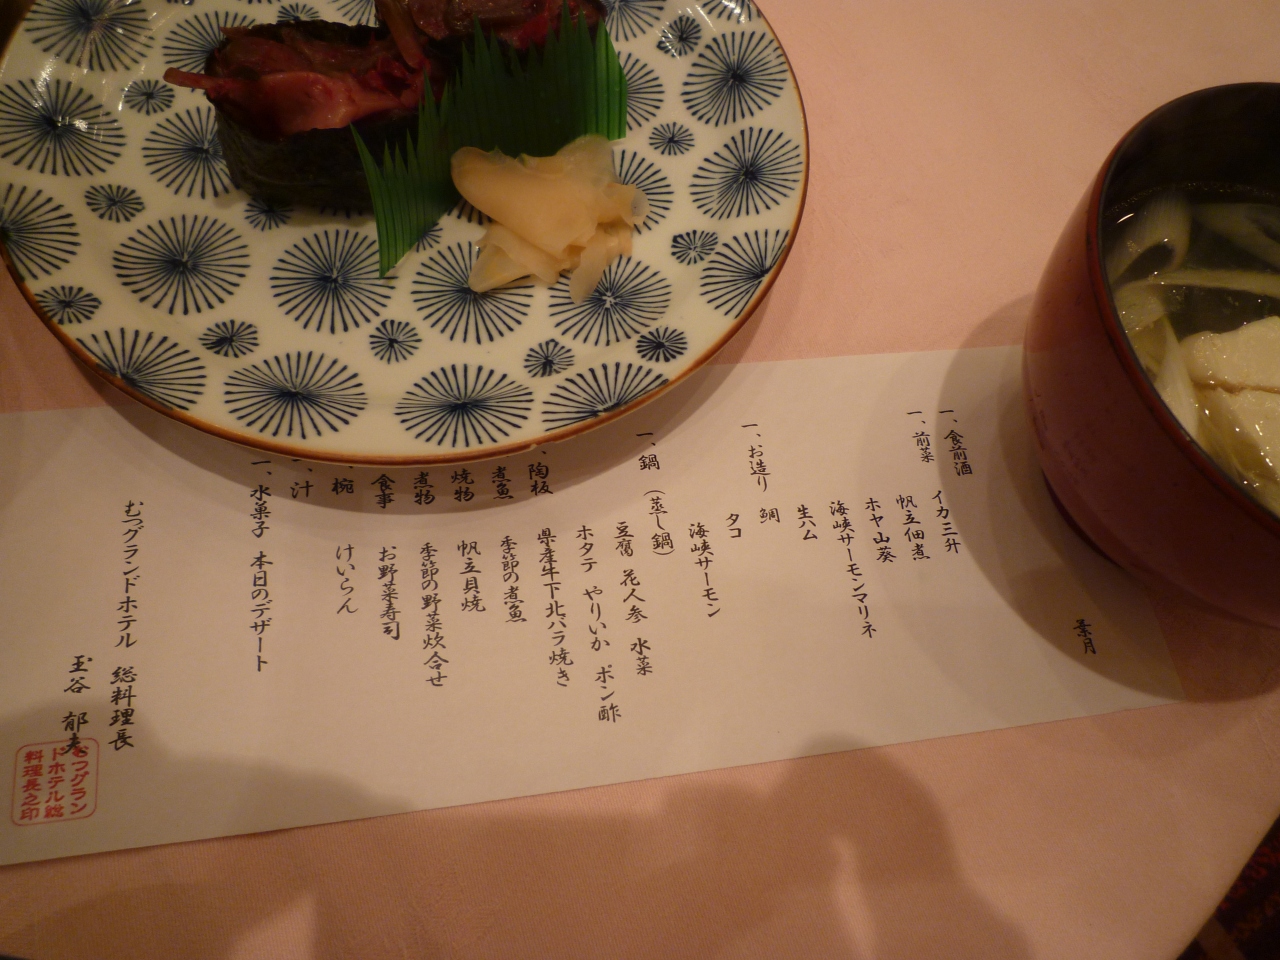 葉月
一、食前酒
一、前菜 イカ三升
帆立佃煮
ホヤ山葵
海峡サーモンマリネ
生ハム
一、お造り 鯛
タコ
海峡サーモン
一、鍋 (蒸し鍋)
豆腐 花人参 水菜
ホタテ やりいか ポン酢
、陶板 県産牛下北バラ焼き
煮魚 季節の煮魚
焼物 帆立貝焼
煮物 季節の野菜炊合せ
食事 お野菜寿司
、椀 けいらん
、汁
一、水菓子 本日のデザート
むつグランドホテル 総料理長
玉谷 郁夫
むつグラン
ドホテル総
料理長之印